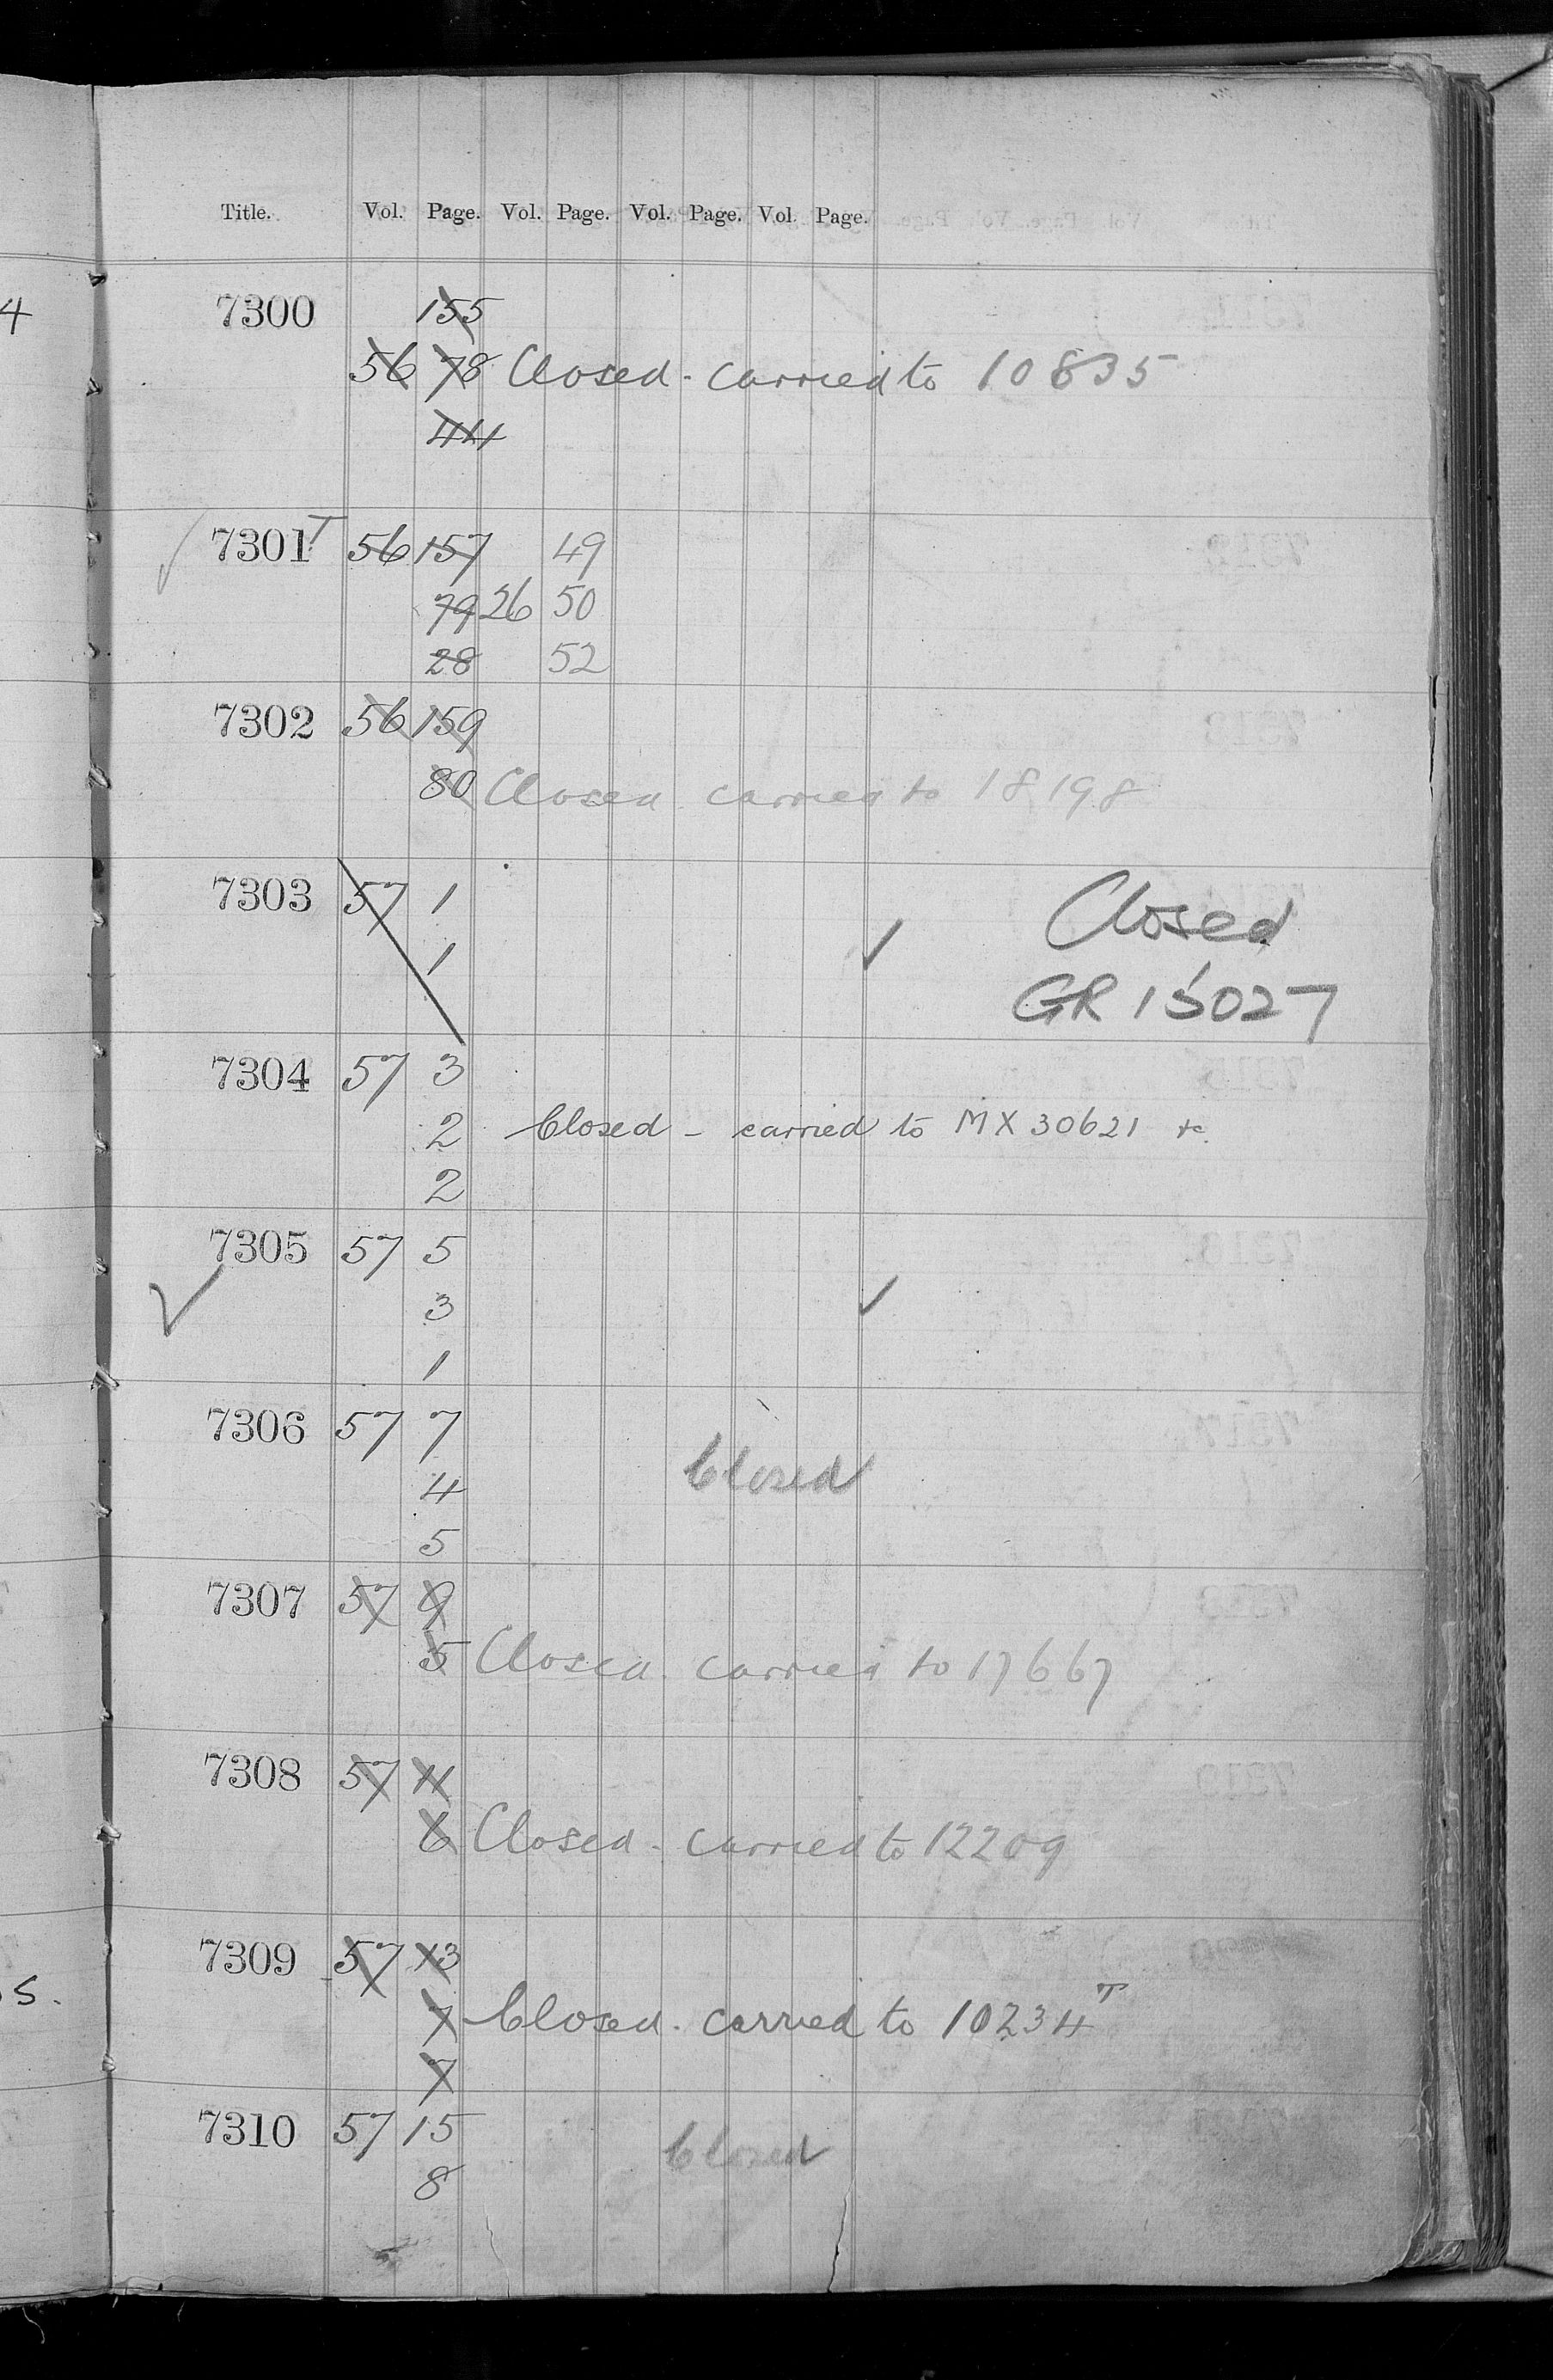 Title. Vol. Page. Vol. Page. Vol. Page. Vol. Page.
4
7300 155
56 78 Closed - carried to 10835
44
7301 T 56 157 49
79 26 50
28 52
7302 56 159
80 Closed carried to 18198
7303 57 1 Closed
1 ✓
GR 15027
7304 57 3
2 Closed - carried to MX 30621 &c.
2
7305 57 5
✓ 3 ✓
1
7306 57 7
4 Closed
5
7307 57 9
5 Closed. carried to 17667
7308 57 11
6 Closed - carried to 12209
7309 57 13
s. 7 Closed. carried to 10234 T
7
7310 57 15
Closed
8